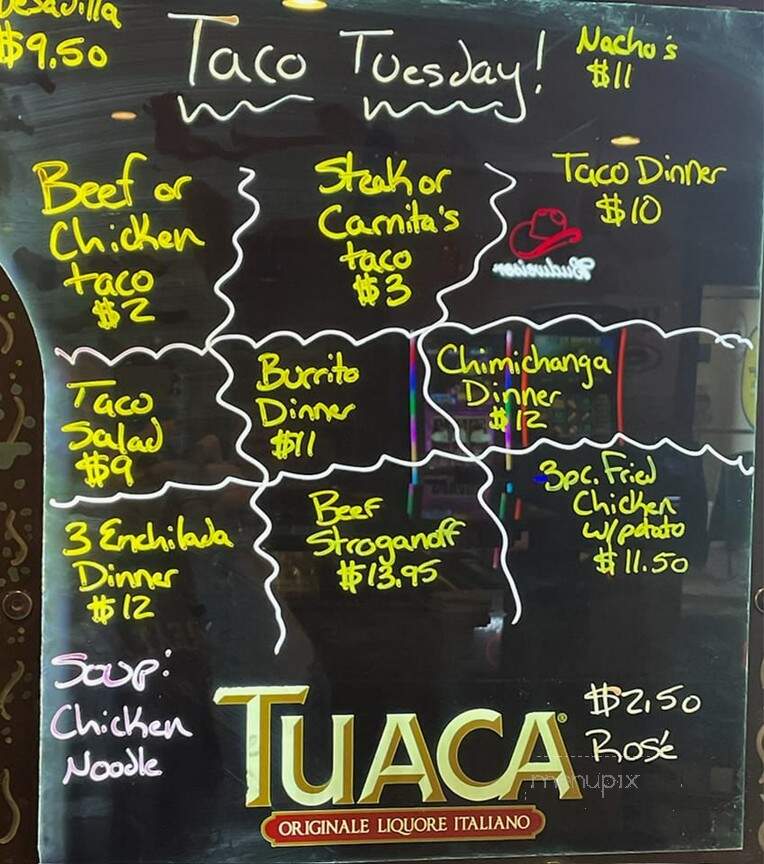 esadilla
$9.50
Taco Tuesday!
Nacho's
$11
Beef or
Chicken
taco
$2
Steak or
Carnita's
taco
$3
Taco Dinner
$10
Budweiser
Taco
Salad
$9
Burrito
Dinner
$11
Chimichanga
Dinner
$12
3 Enchilada
Dinner
$12
Beef
Stroganoff
$13.95
3pc. Fried
Chicken
w/potato
$11.50
Soup:
Chicken
Noodle
TUACA®
ORIGINALE LIQUORE ITALIANO
$2.50
Rosé
menupix